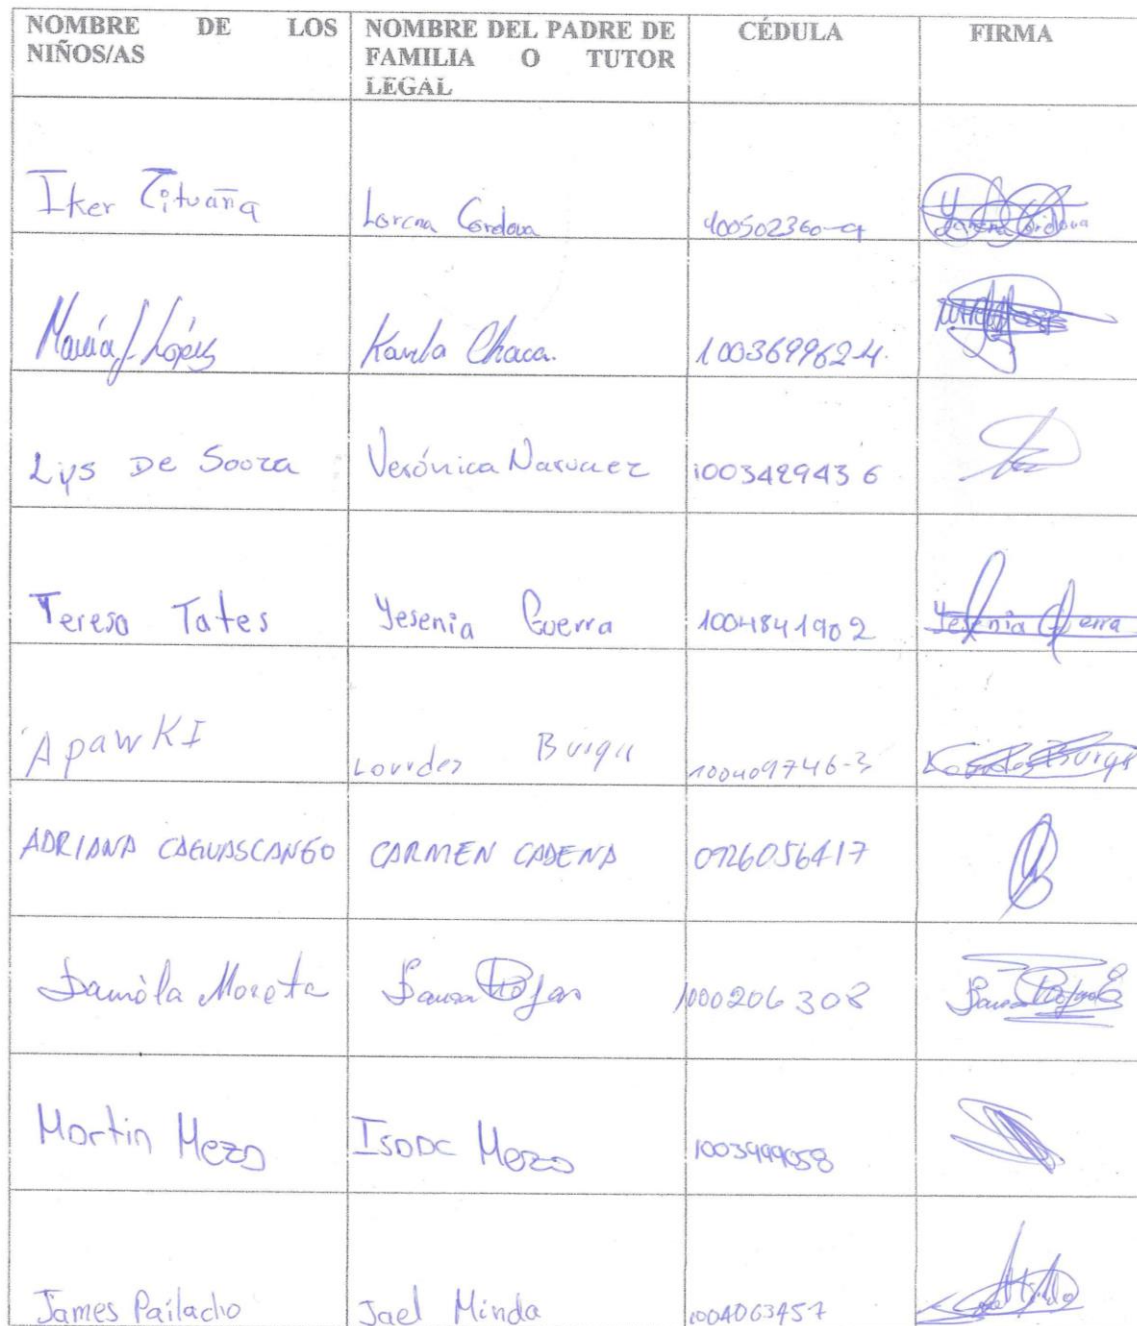 NOMBRE DE LOS NIÑOS/AS
NOMBRE DEL PADRE DE FAMILIA O TUTOR LEGAL
CÉDULA
FIRMA
Iker Tituaña Lorena Cordova
María J. López Karla Chaca. 100369962-4.
Lys De Sooza Verónica Narvaez 1003429436
Teresa Tates Yesenia Guerra 1004841902 Yesenia Guerra
Apawki Lourdes Burga 100409746-3 Burga
ADRIANA CAGUASCANGO CARMEN CADENA
Moreta Rojas 1000206308
Martin Meza Isaac Meza
James Pailacho Jael Minda 1004063457